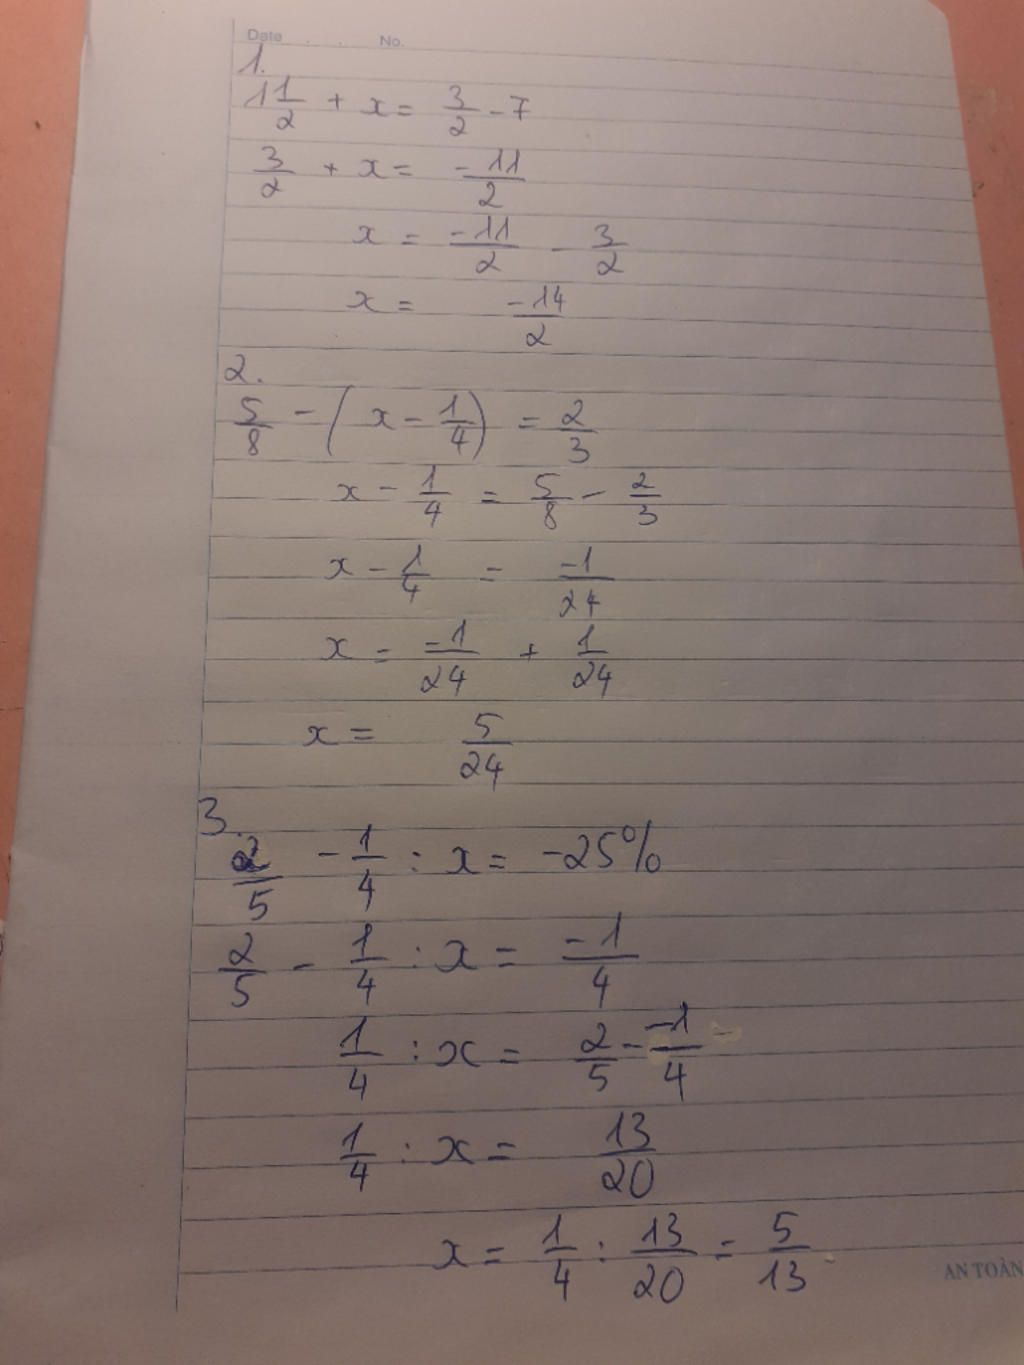 Date . . No.
1.
1 1/2 + x = 3/2 - 7
3/2 + x = -11/2
x = -11/2 - 3/2
x = -14/2
2.
5/8 - (x - 1/4) = 2/3
x - 1/4 = 5/8 - 2/3
x - 1/4 = -1/24
x = -1/24 + 1/24
x = 5/24
3.
2/5 - 1/4 : x = -25%
2/5 - 1/4 : x = -1/4
1/4 : x = 2/5 - -1/4
1/4 : x = 13/20
x = 1/4 : 13/20 = 5/13
AN TOÀN